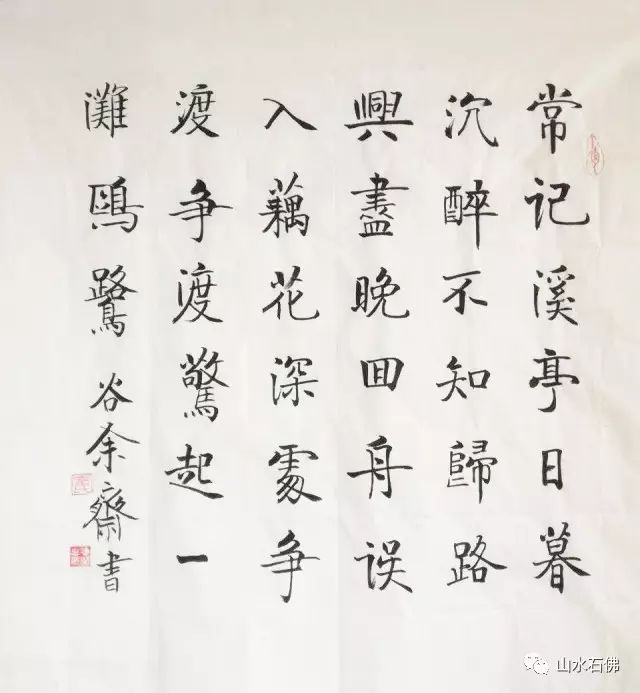 常记溪亭日暮
沉醉不知歸路
興盡晚回舟误
入藕花深處争
渡争渡驚起一
灘鷗鷺 谷余齋書
山水石佛